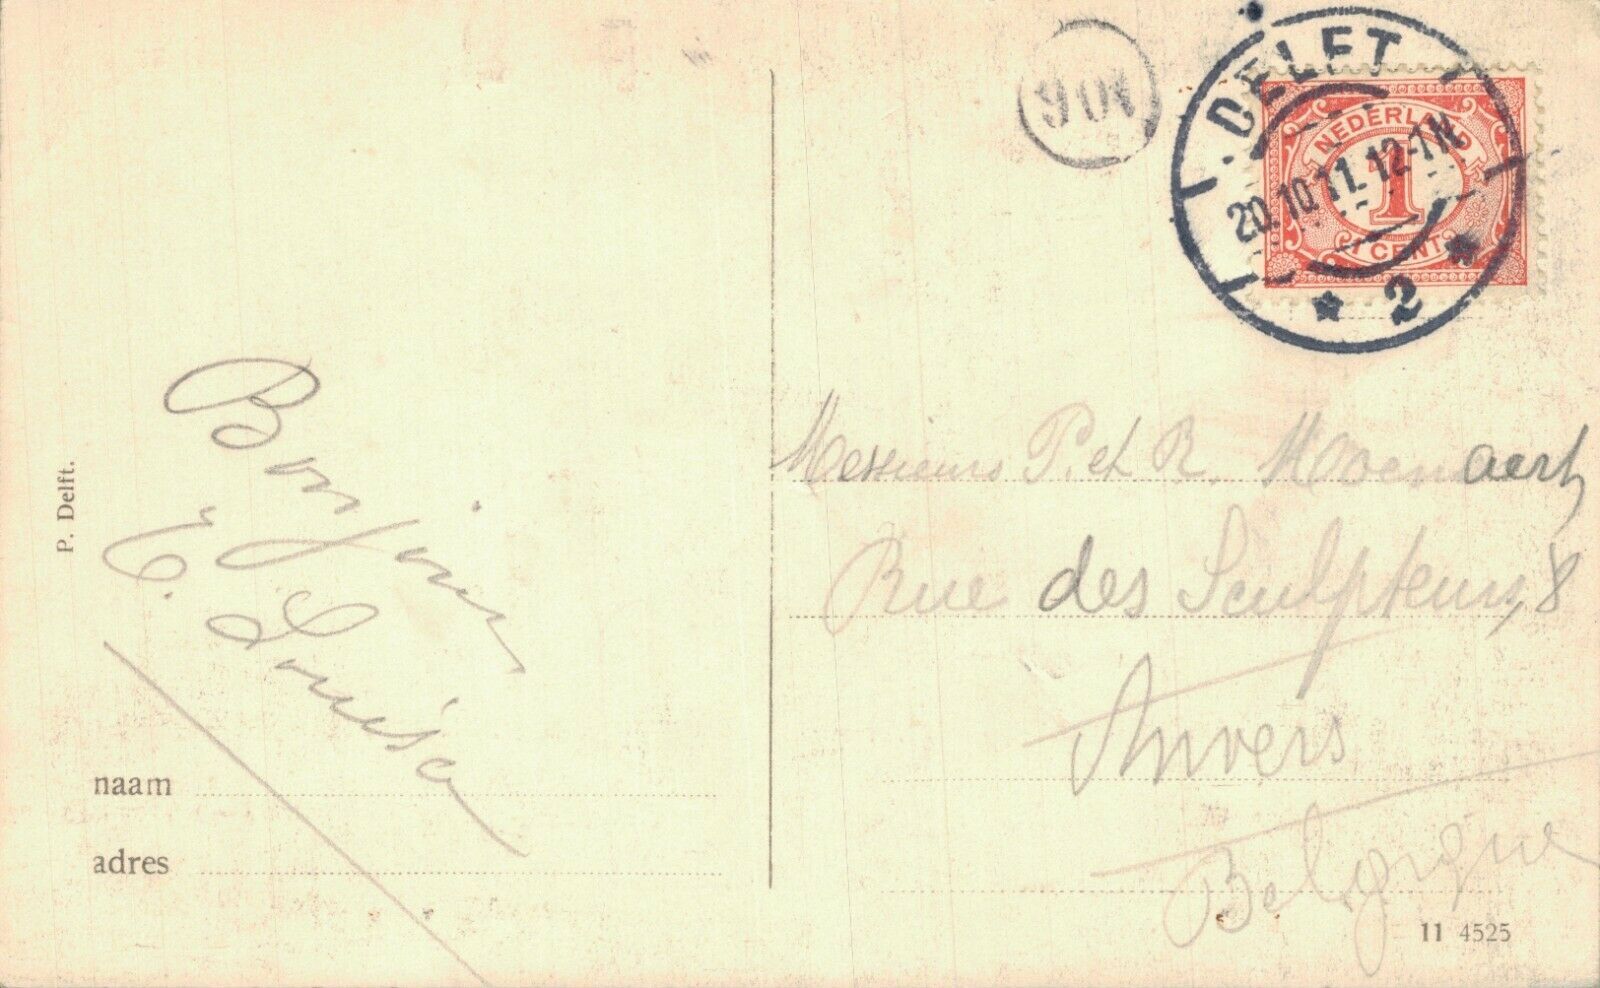 DELFT 1
20.10.11. 12-1N
2
NEDERLAND
1
CENT
Bonjour
E. Louisa
P. Delft.
naam
adres
Messieurs P. et R. Moenaert
Rue des Sculpteurs, 8
Anvers
Belgique
11 4525